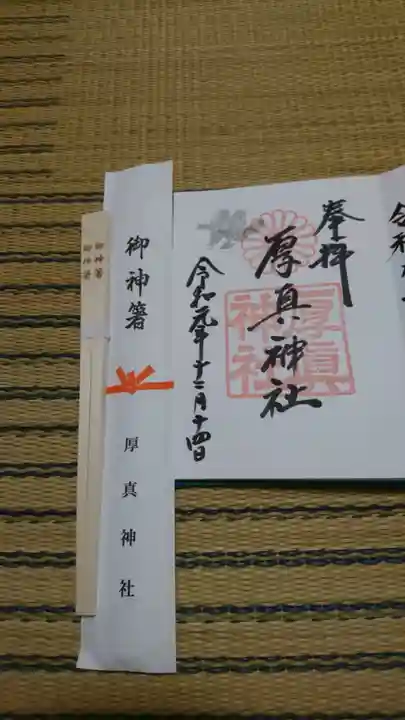 奉拝
厚真神社
厚真
神社
令和元年十二月十四日
御神箸
厚真神社
御神箸
御神箸